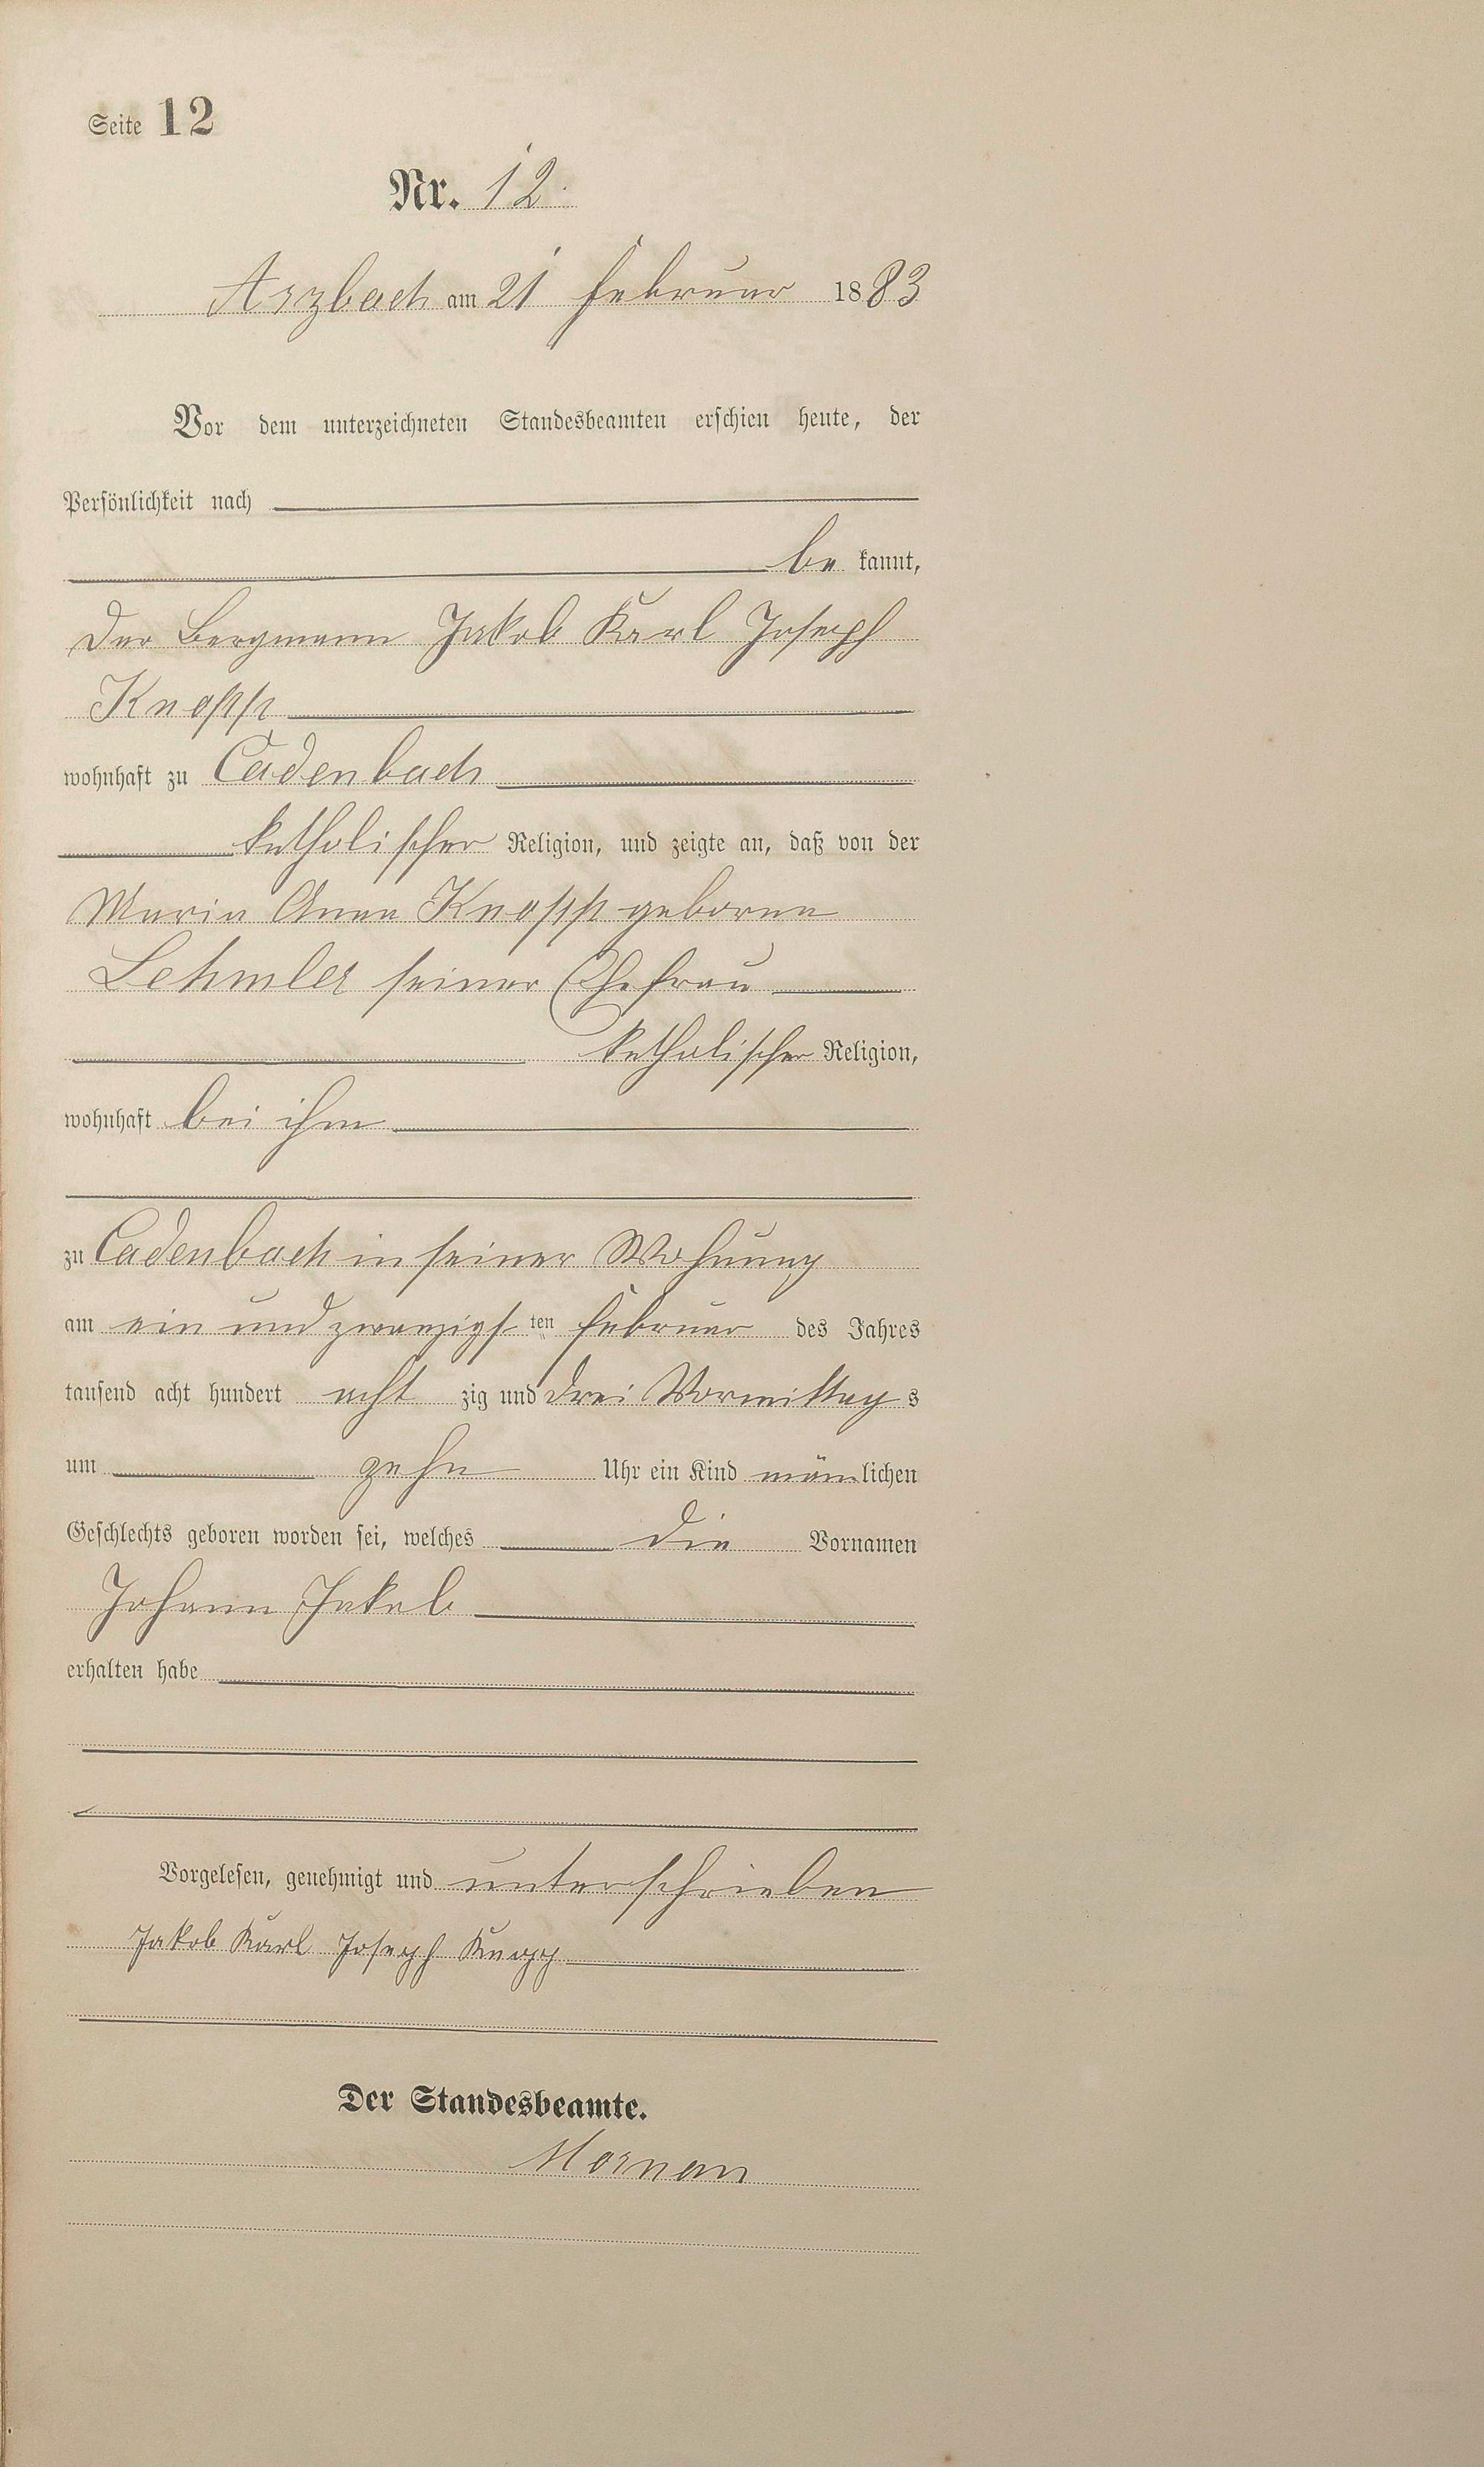 Seite 12
Nr. 12.
Arzbach am 21 Februar 1883
Vor dem unterzeichneten Standesbeamten erschien heute, der
Persönlichkeit nach
be kannt,
der Bergmann Jakob Karl Joseph
Knopp
wohnhaft zu Cadenbach
katholischer Religion, und zeigte an, daß von der
Maria Anna Knopp geborene
Lehmler seiner Ehefrau
katholischer Religion,
wohnhaft bei ihm
zu Cadenbach in seiner Wohnung
am ein und zwanzigsten Februar des Jahres
tausend acht hundert acht zig und drei Vormittags
um zehn Uhr ein Kind männlichen
Geschlechts geboren worden sei, welches die Vornamen
Johann Jakob
erhalten habe
Vorgelesen, genehmigt und unterschrieben
Jakob Karl Joseph Knopp
Der Standesbeamte.